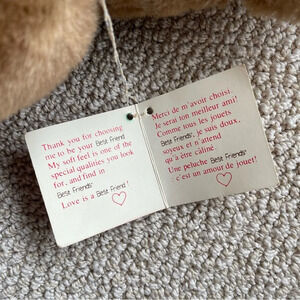 Thank you for choosing
me to be your Best Friend
My soft feel is one of the
special qualities you look
for, and find in
Best Friends'
Love is a Best Friend!
Merci de m'avoir choisi
Je serai ton meilleur ami!
Comme tous les jouets
Best Friends', je suis doux,
soyeux et n'attend
qu'à être câliné.
Une peluche Best Friends'
c'est un amour de jouet!